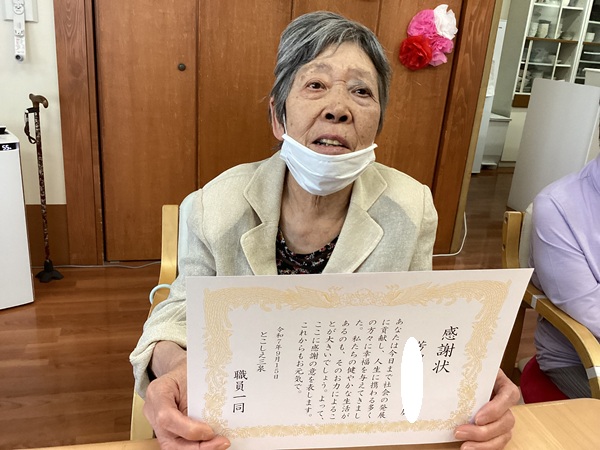 感謝状
あなたは今日まで社会の発展
に貢献し、人生に携わる多く
の方々に幸福を与えてきまし
た。私たちの健やかな生活が
あるのも、そのお力によるこ
とが大きいでしょう。よって、
ここに感謝の意を表します。
これからもお元気で。
令和7年9月15日
とこしえ三泉
職員一同
55